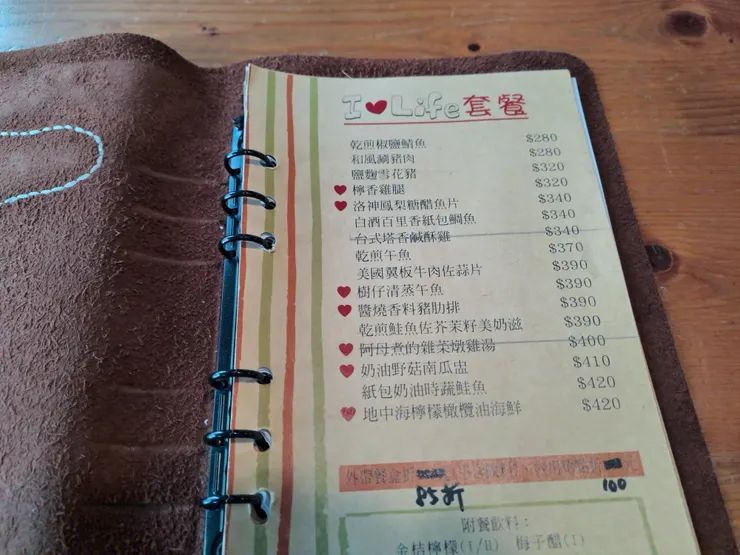 I ❤ Life套餐
乾煎椒鹽鯖魚 $280
和風涮豬肉 $280
鹽麴雪花豬 $320
❤ 檸香雞腿 $320
❤ 洛神鳳梨糖醋魚片 $340
白酒百里香紙包鯛魚 $340
台式塔香鹹酥雞 $340
乾煎午魚 $370
美國翼板牛肉佐蒜片 $390
❤ 樹仔清蒸午魚 $390
❤ 醬燒香料豬肋排 $390
乾煎鮭魚佐芥茉籽美奶滋 $390
❤ 阿母煮的雜菜燉雞湯 $400
❤ 奶油野菇南瓜盅 $410
紙包奶油時蔬鮭魚 $420
❤ 地中海檸檬橄欖油海鮮 $420
外帶餐盒 元
85折 100
附餐飲料：
金桔檸檬(I/H) 梅子醋(I)